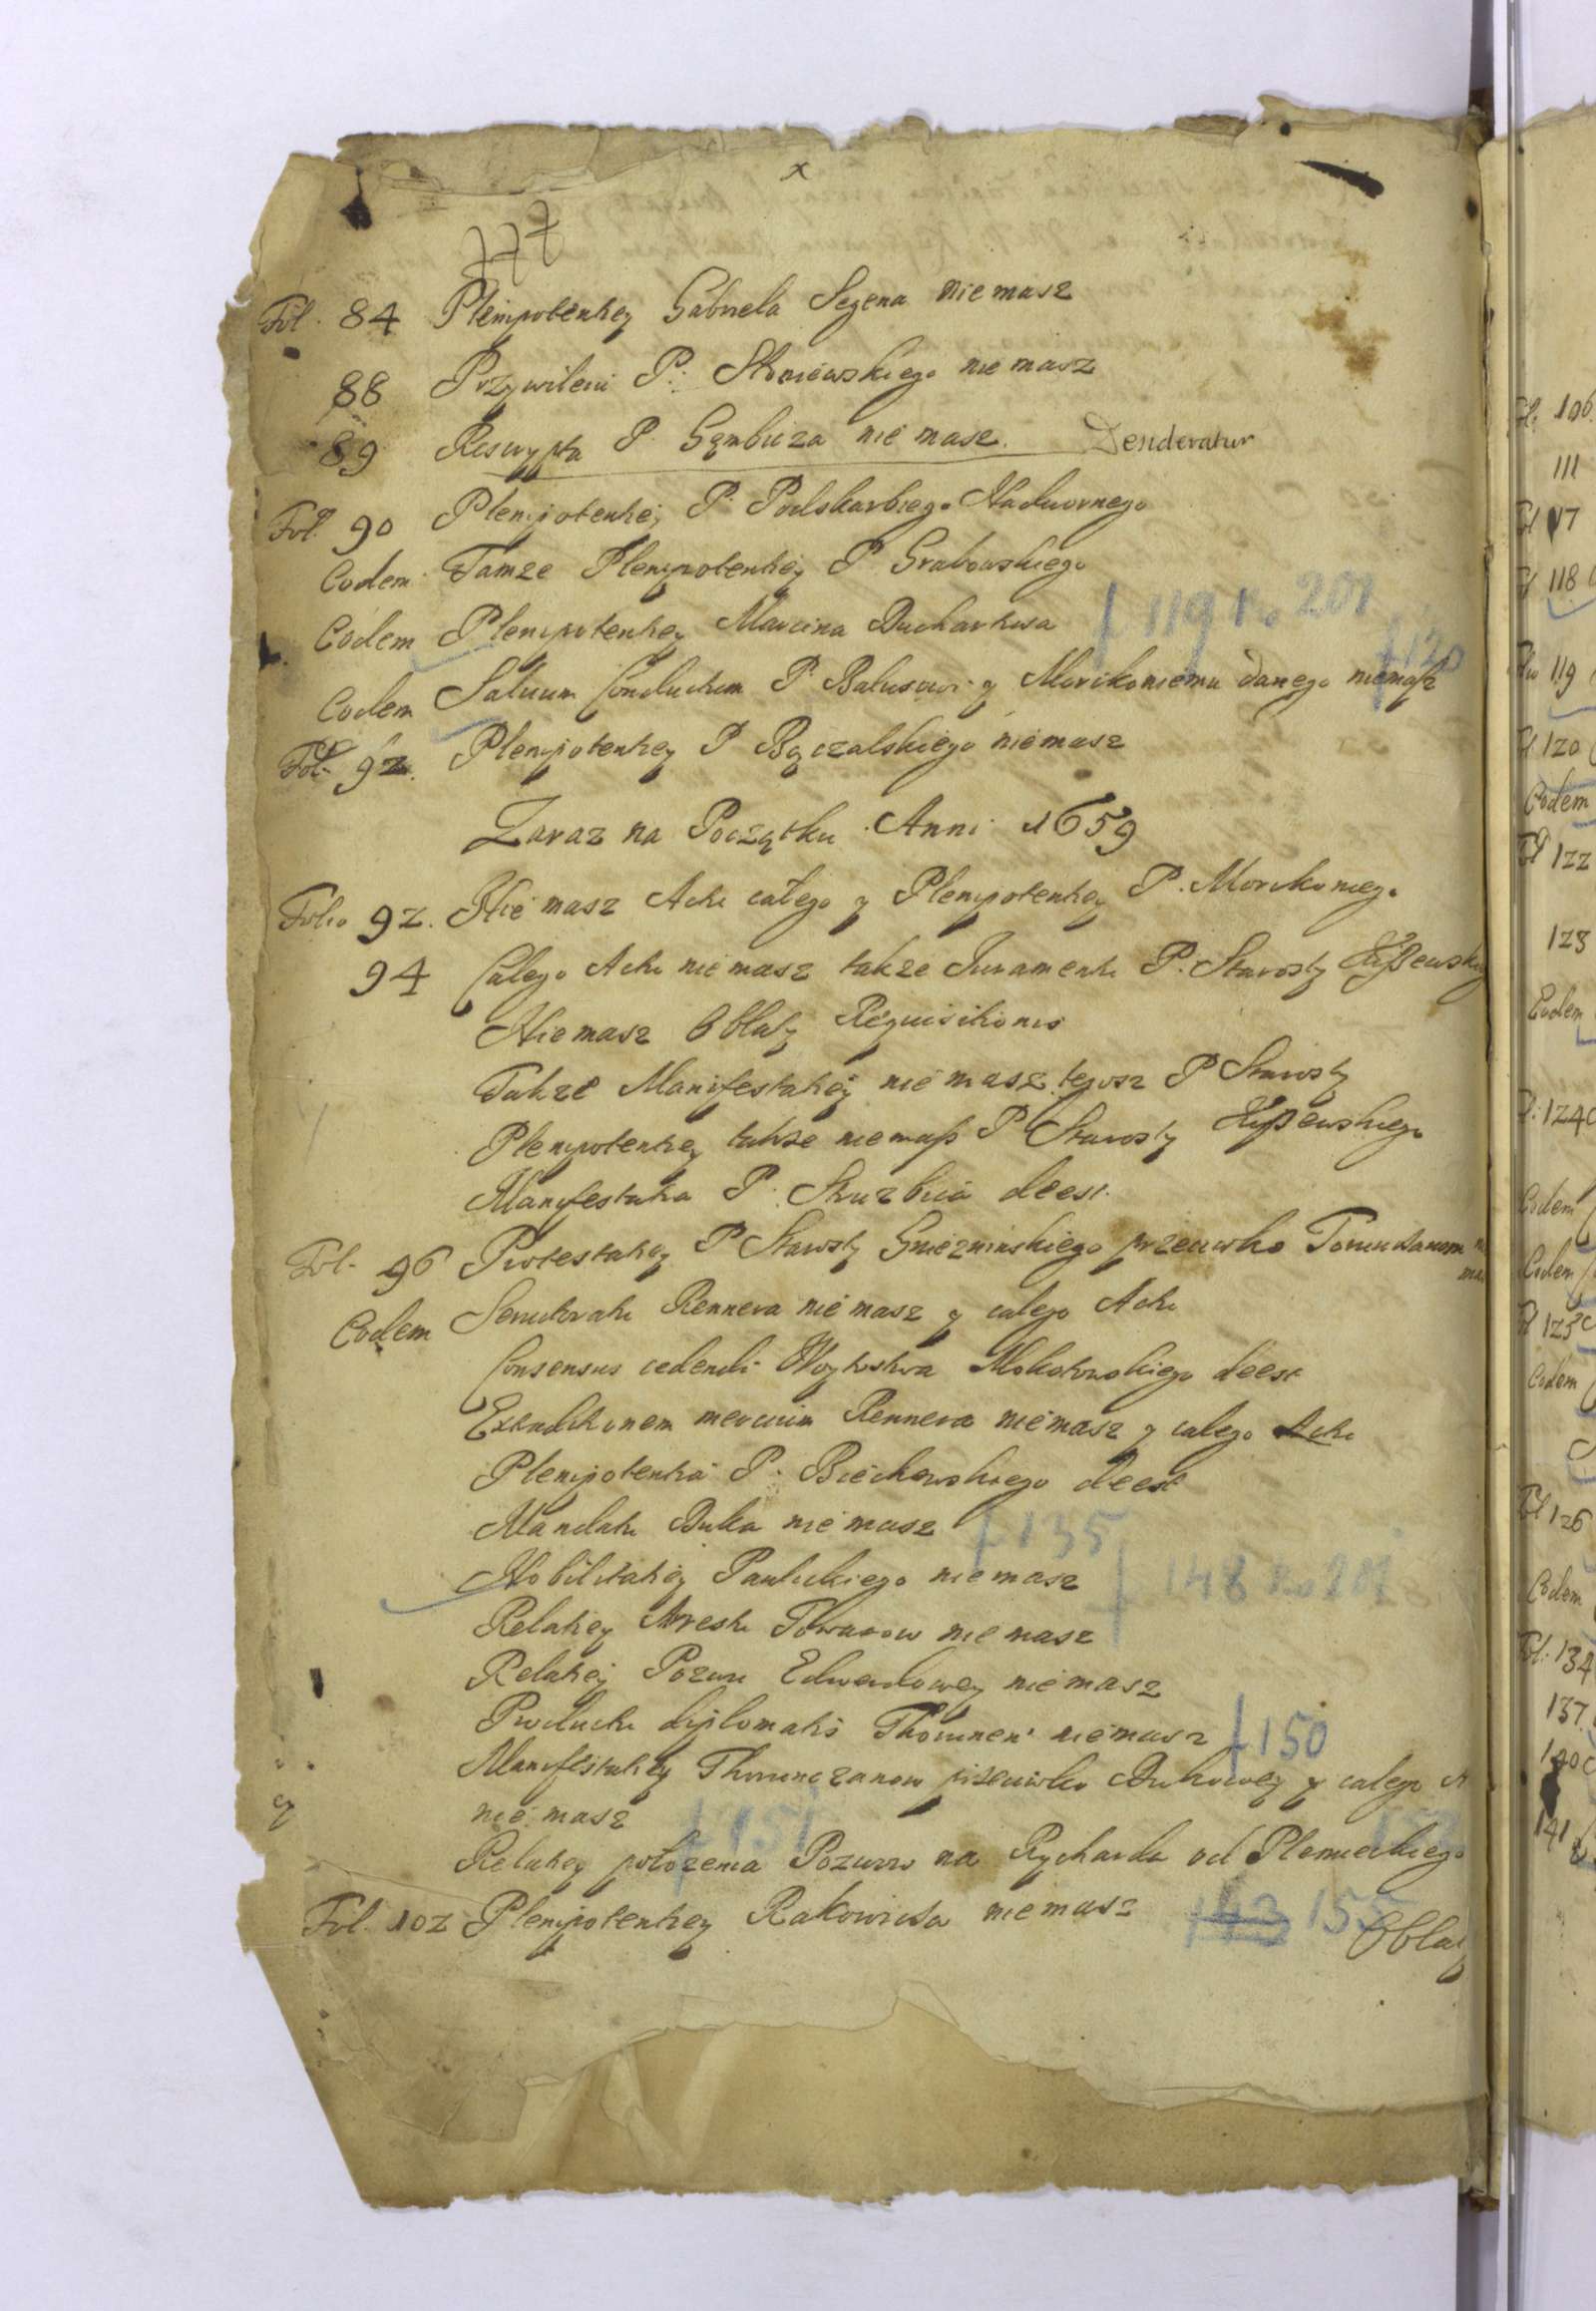 x
Fol. 84 Plenipotentiey Gabriela Segena nie masz
88 Przywileiu P. Słoniewskiego nie masz
89 Rescrypta P. Gębicza nie masz. Desideratur
Fol. 90 Plenipotentiey P. Podskarbiego Nadwornego
Eodem Tamze Plenipotentiey P Grabowskiego
Eodem Plenipotentiey Marcina Bucharkusa
119 201
120
Eodem Salvum Conductum P. Balusowi y Morikoniemu danego niemasz
Fol. 92. Plenipotentiey P Bączalskiego niemasz
Zaraz na Początku Anni 1659
Folio 92. Nie masz Actu całego y Plenipotentiey P. Morikoniego
94 Całego Actu nie masz także Juramentu P. Starosty
Nie masz Oblaty Requisitionis
Także Manifestatiey nie masz tegosz P Starosty
Plenipotentiey także niemasz P Starosty
Manifestatia P. deest.
Fol. 96 Protestatiey P Starosty Gnieznińskiego przeciwko
Eodem Servitoratu Rennera nie masz y całego Actu
Consensus cedendi Woytostwa Mokotowskiego deest
Rennera nie masz y całego Actu
Plenipotentia P. Biechowskiego deest
Mandatu Buka nie masz 135
Nobilitatiey Pawlickiego nie masz 148
Relatiey Arestu Towarow nie masz
Relatiey Pozwu Edwardowey nie masz
Productu diplomatis Thorunen nie masz 150
Manifestatiey Thorunczanow przeciwko Bukowey y całego
nie masz 151
Relatiey położenia Pozwu na Rycharda od Plemieckiego
Fol. 102 Plenipotentiey Rakowicza nie masz 143 155
Oblaty
106
111
117
118
119
120
Eodem
122
123
Eodem
124
Eodem
Eodem
125
Eodem
126
Eodem
134
137
140
141